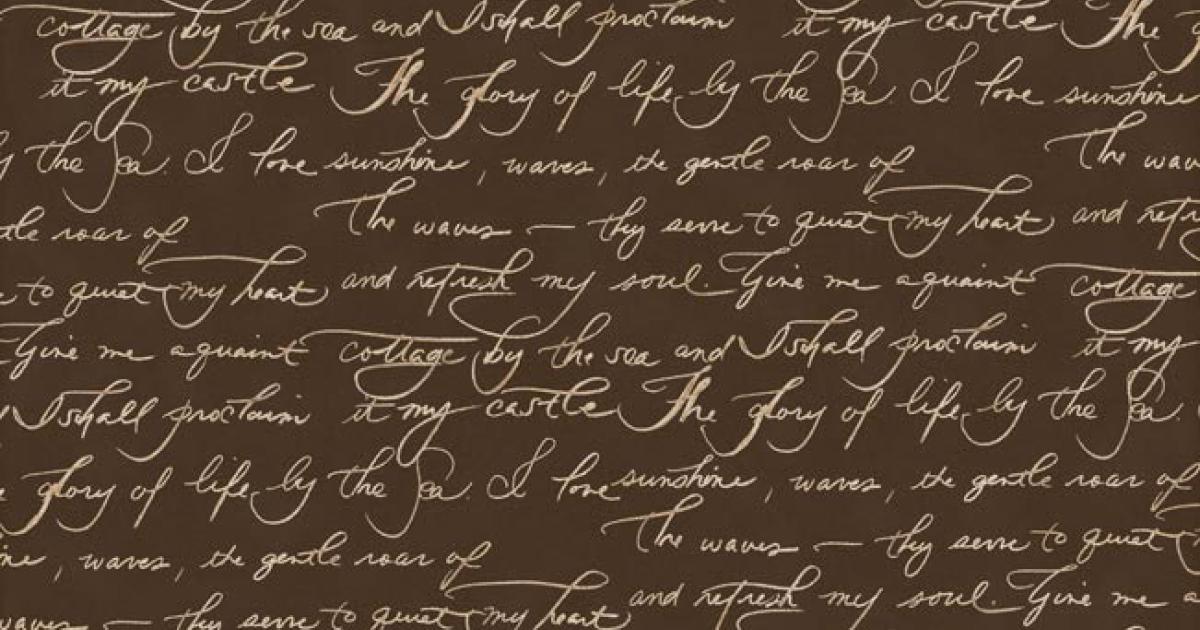 cottage by the sea and I shall proclaim it my castle The
it my castle The glory of life by the Sea. I love sunshine
the Sea. I love sunshine, waves, the gentle roar of The wav
tle roar of The waves — they serve to quiet my heart and refr
to quiet my heart and refresh my soul. Give me a quaint cottage
Give me a quaint cottage by the sea and I shall proclaim it my
I shall proclaim it my castle The glory of life by the Sea.
glory of life by the Sea. I love sunshine, waves, the gentle roar of
ne, waves, the gentle roar of The waves — they serve to quiet
waves — they serve to quiet my heart and refresh my soul. Give me a